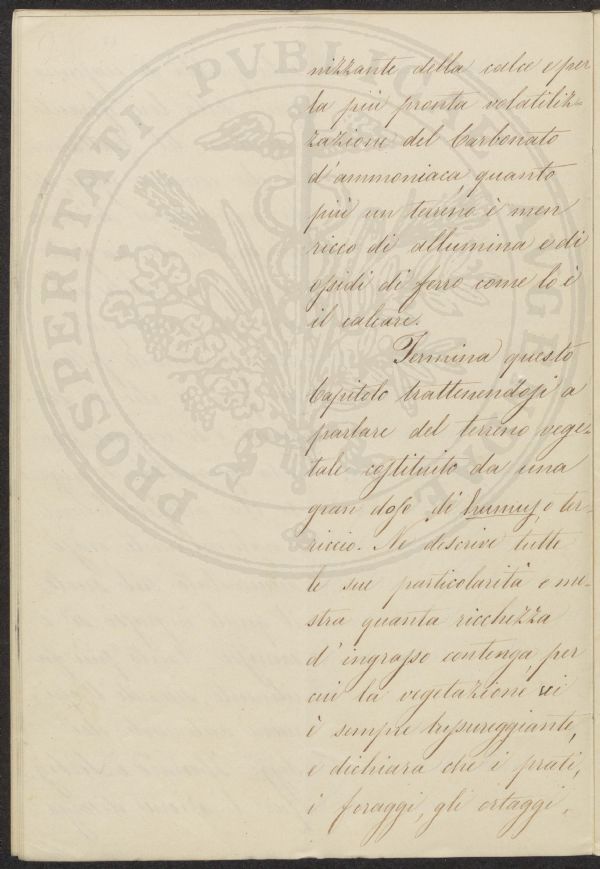 nizzante della calce e per
la più pronta volatiliz-
zazione del Carbonato
d'ammoniaca, quanto
più un terreno è men
ricco di allumina e di
ossidi di ferro come lo è
il calcare.
Termina questo
Capitolo trattenendosi a
parlare del terreno vege-
tale costituito da una
gran dose di humus, o ter-
riccio. Ne descrive tutte
le sue particolarità e mo-
stra quanta ricchezza
d'ingrasso contenga, per
cui la vegetazione vi
è sempre lussureggiante,
e dichiara che i prati,
i foraggi, gli ortaggi,
PROSPERITATI PVBLICAE AVGENDAE